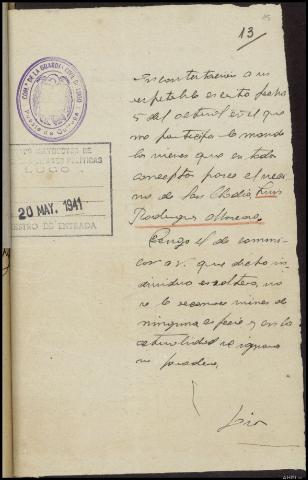 13/
COM. DE LA GUARDIA CIVIL DE LUGO
Puesto de Quiroga
INSTRUCTOR DE
POLITICAS
LUGO
20 MAY. 1941
REGISTRO DE ENTRADA
En contestacion a su
respetable escrito fecha
5 del actual en el que
me participa le mande
los bienes que en todo
concepto posee el veci
no de San Clodio, Luis
Rodriguez
Tengo el de comuni
car a S. que dicho in
dividuo es soltero, no
se le reconoce bienes de
ninguna especie y en la
actualidad se ignora
su paradero.
Dios